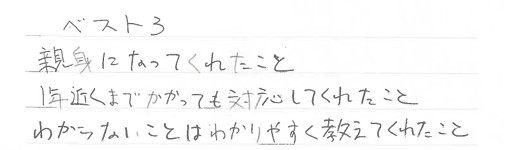 ベスト3
親身になってくれたこと
1年近くまでかかっても対応してくれたこと
わからないことはわかりやすく教えてくれたこと